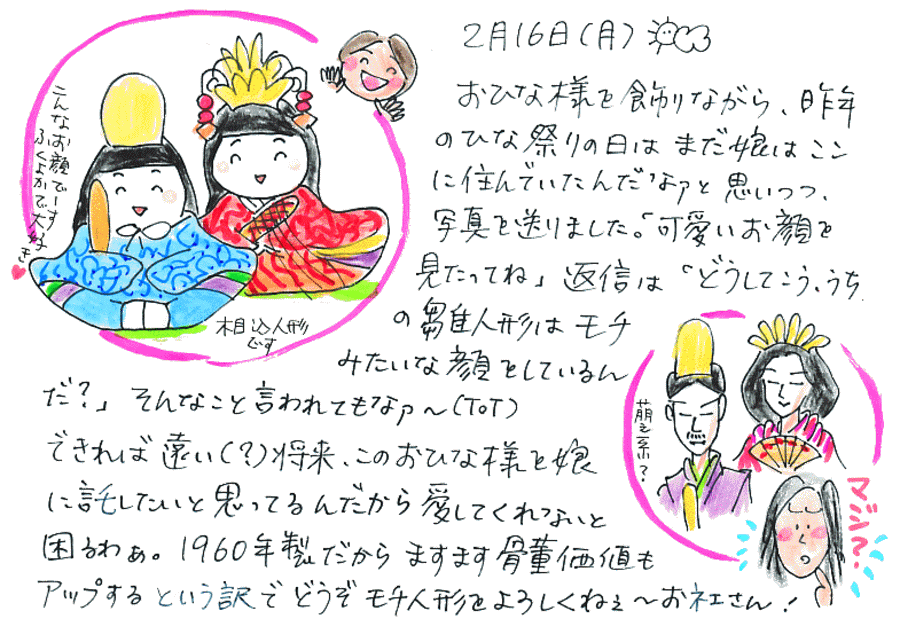 2月16日(月)
おひな様を飾りながら、昨年
のひな祭りの日は まだ娘は ここ
に住んでいたんだなァと 思いつつ、
写真を送りました。「可愛いお顔を
見たってね」返信は「どうしてこう、うち
の雛人形は モチ
みたいな顔をしているん
だ?」 そんなこと言われてもなァ〜(ToT)
できれば 遠い(?)将来、このおひな様を娘
に託したいと思ってるんだから愛してくれないと
困るわぁ。1960年製だから ますます骨董価値も
アップする という訳で どうぞ モチ人形をよろしくねぇ〜お上さん!
こんなお顔でーす
ふくよかで大好き
木目込人形
です
萌え系?
マジ?